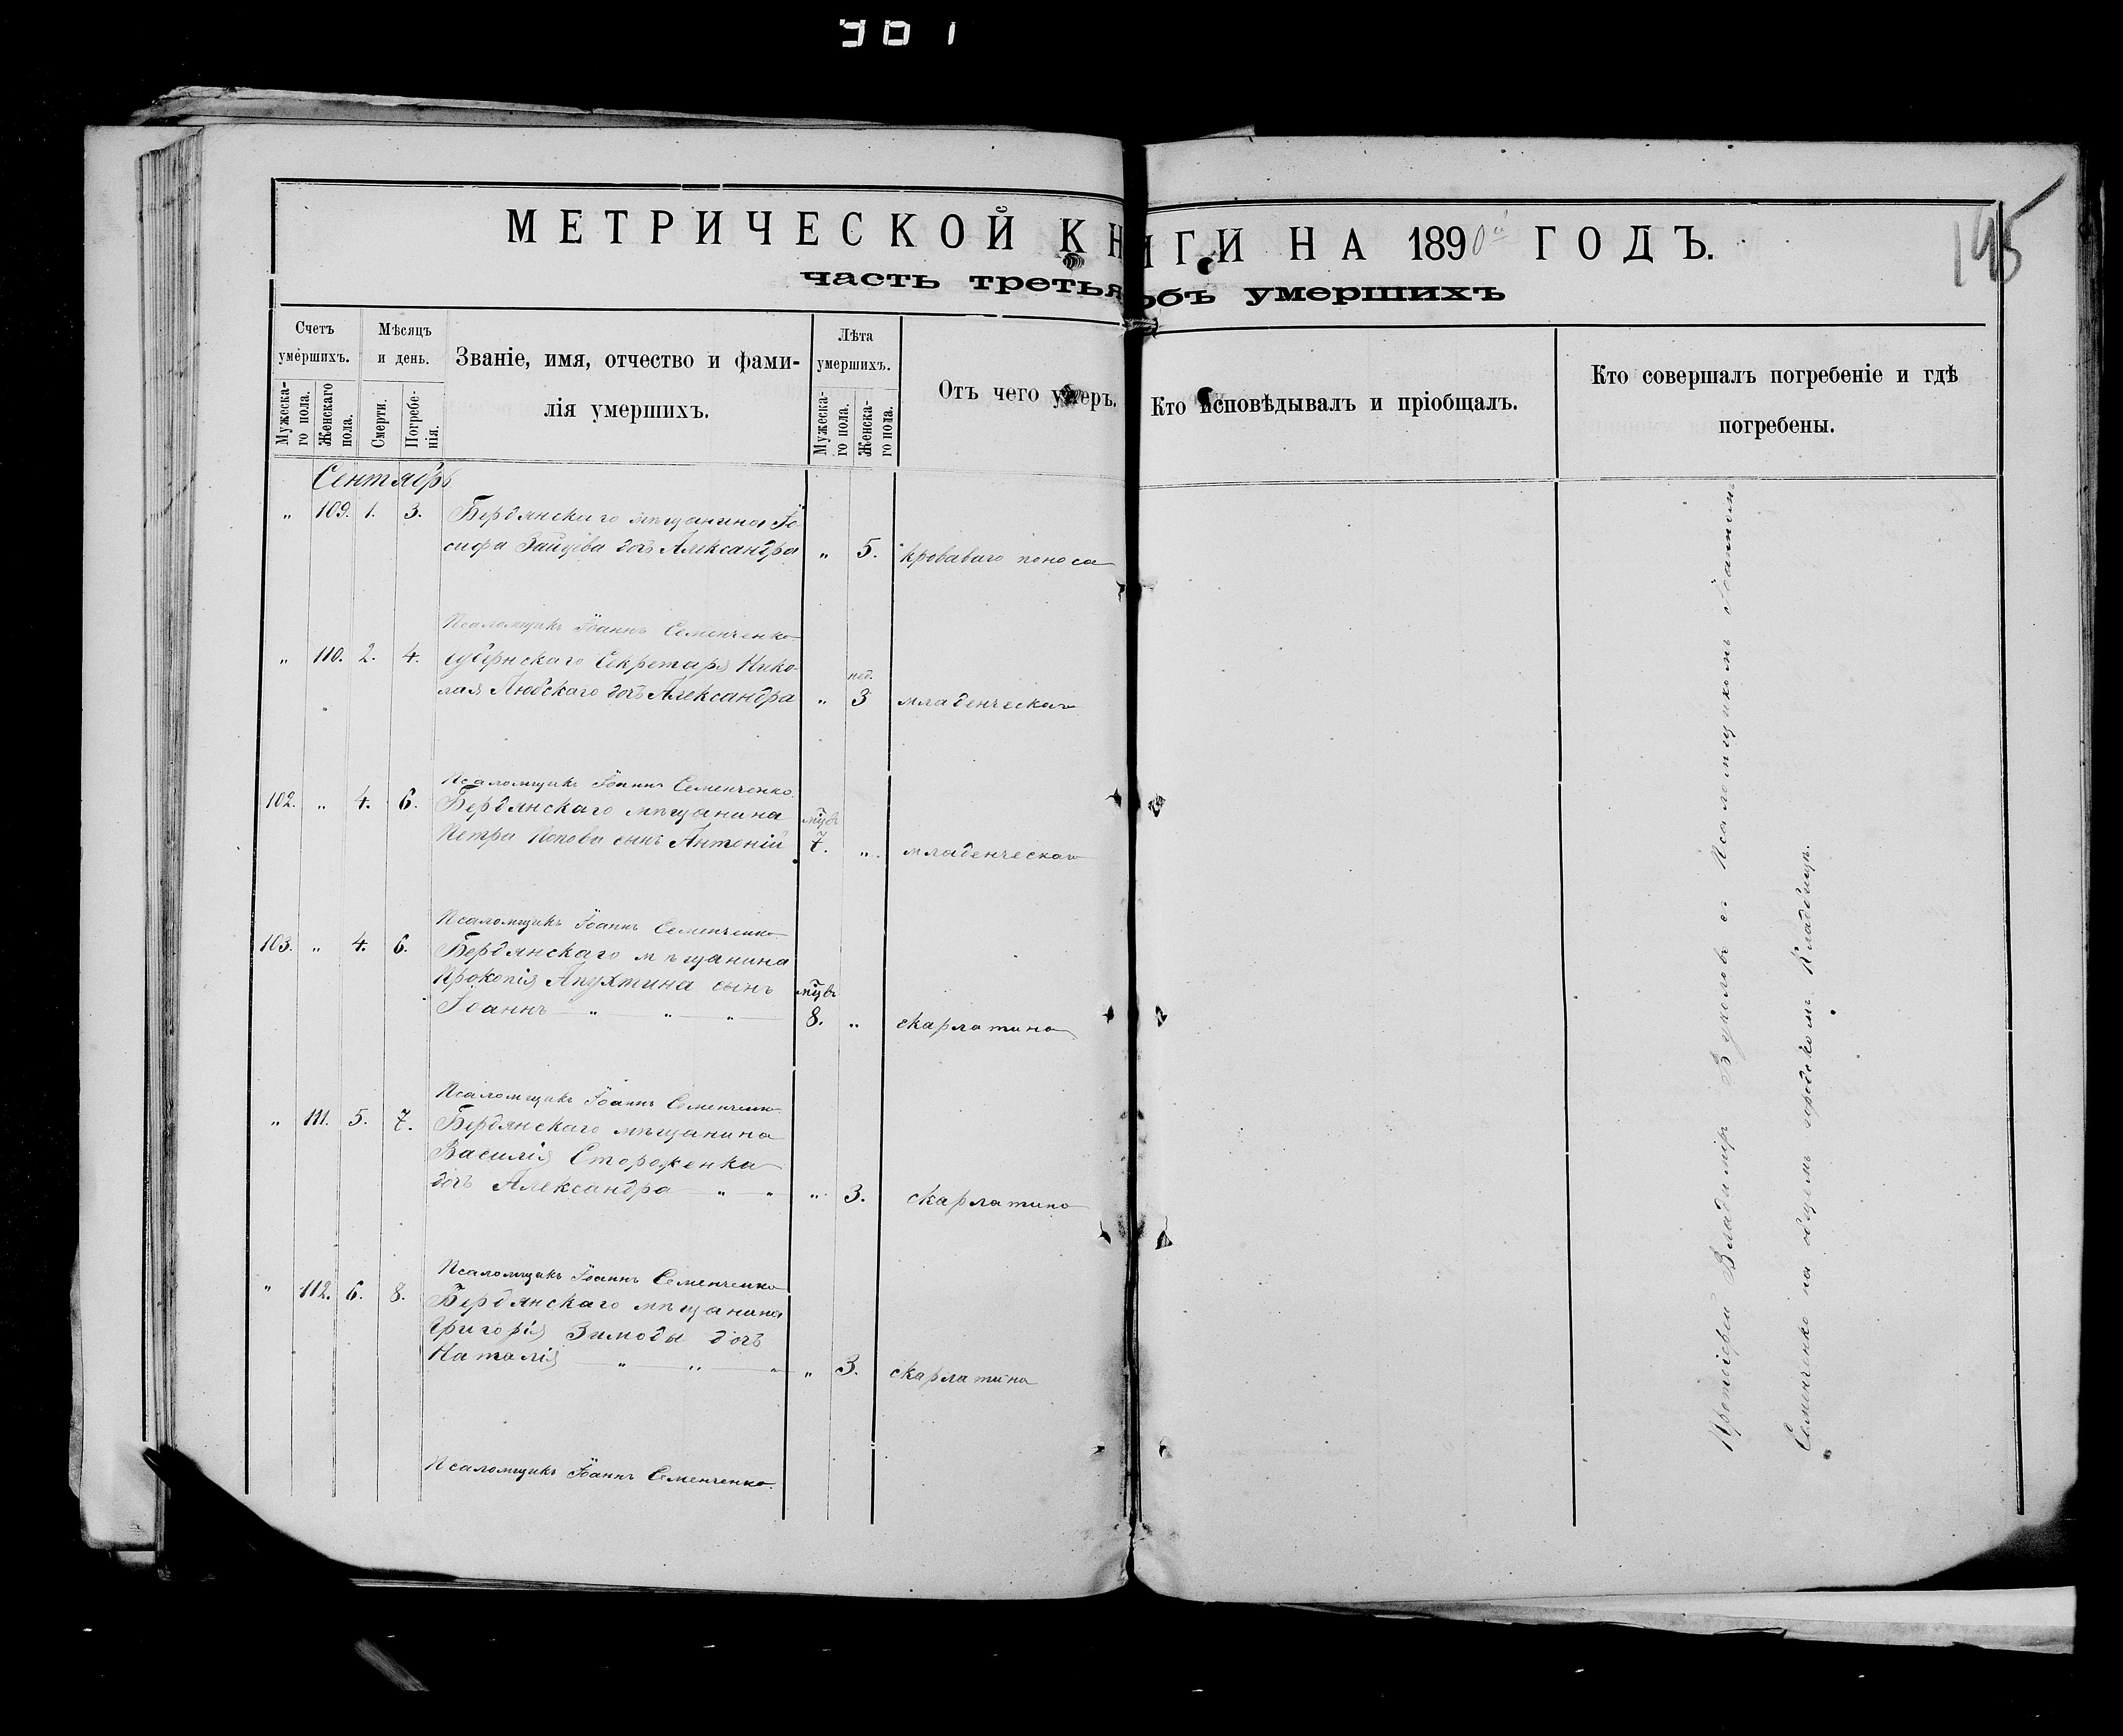 МЕТРИЧЕСКОЙ КНИГИ НА 1890й ГОДЪ.
195
часть третья объ умершихъ
Счетъ умершихъ.
Мужескаго пола.
Женскаго пола.
Мѣсяцъ и день.
Смерти.
Погребенія.
Званіе, имя, отчество и фами-
лія умершихъ.
Лѣта умершихъ.
Мужеска-го пола.
Женска-го пола.
Отъ чего умеръ.
Кто исповѣдывалъ и пріобщалъ.
Кто совершалъ погребеніе и гдѣ
погребены.
Сентябрь
„ 109. 1. 3. Бердянскаго мѣщанина Іо
сифа Зайцева дочь Александра „ 5. кроваваго поноса
Псаломщикъ Іоаннъ Семенченко
„ 110. 2. 4. Губернскаго Секретаря Нико-
нед.
лая Любскаго дочь Александра „ 3 младенческаго
Псаломщикъ Іоаннъ Семенченко.
102. „ 4. 6. Бердянскаго мѣщанина мцвъ
Петра Попова сынъ Антоній 7. „ младенческаго
Псаломщикъ Іоаннъ Семенченко
103. „ 4. 6. Бердянскаго мѣщанина
Прокопія Апухтина сынъ мцвъ
Іоаннъ „ „ „ 8. „ скарлатина
Псаломщикъ Іоаннъ Семенченко
„ 111. 5. 7. Бердянскаго мѣщанина
Василія Стороженка
дочь Александра „ „ „ 3. скарлатина
Псаломщикъ Іоаннъ Семенченко
„ 112. 6. 8. Бердянскаго мѣщанина
Григорія Зимоды дочь
Наталія „ „ „ „ 3. скарлатина
Псаломщикъ Іоаннъ Семенченко.
Протоіерей Владиміръ Вуколовъ съ Псаломщикомъ Іоанномъ
Семенченко на общемъ городскомъ Кладбищѣ.